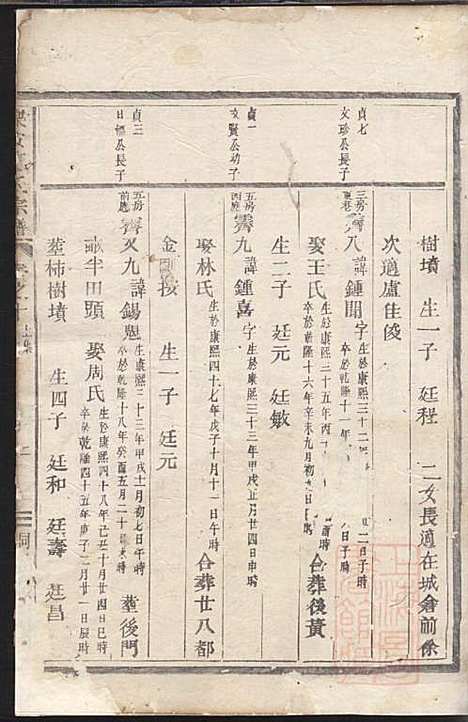 樹墳 生一子 廷程 二女長適在城
前徐
次適盧佳俊
貞七
文珍公長子
三房
八諱鍾聞字
生於康熙三十二
二日子時
卒於乾隆十一年
日子時
娶王氏
生於康熙三十五年丙
卒於乾隆十六年辛未九月初
時
合葬後黃
生二子 廷元 廷敏
貞一
文賢公幼子
五房
四應
霽九諱鍾喜字
生於康熙三十三年甲戌正月廿四日申時
娶林氏
生於康熙四十七年戊子十月十一日午時
合葬廿八都
金
按 生一子 廷元
貞三
日
公長子
五房
前應
霽又九諱錫魁
生康熙三十三年甲戌十月初七日午時
卒於乾隆十八年癸酉五月二十
日未時
葬後門
半田頭 娶周氏
生康熙四十八年己丑十月廿四日巳時
卒乾隆四十五年庚子二月廿一日辰時
葬柿樹墳 生四子 廷和 廷壽 廷昌